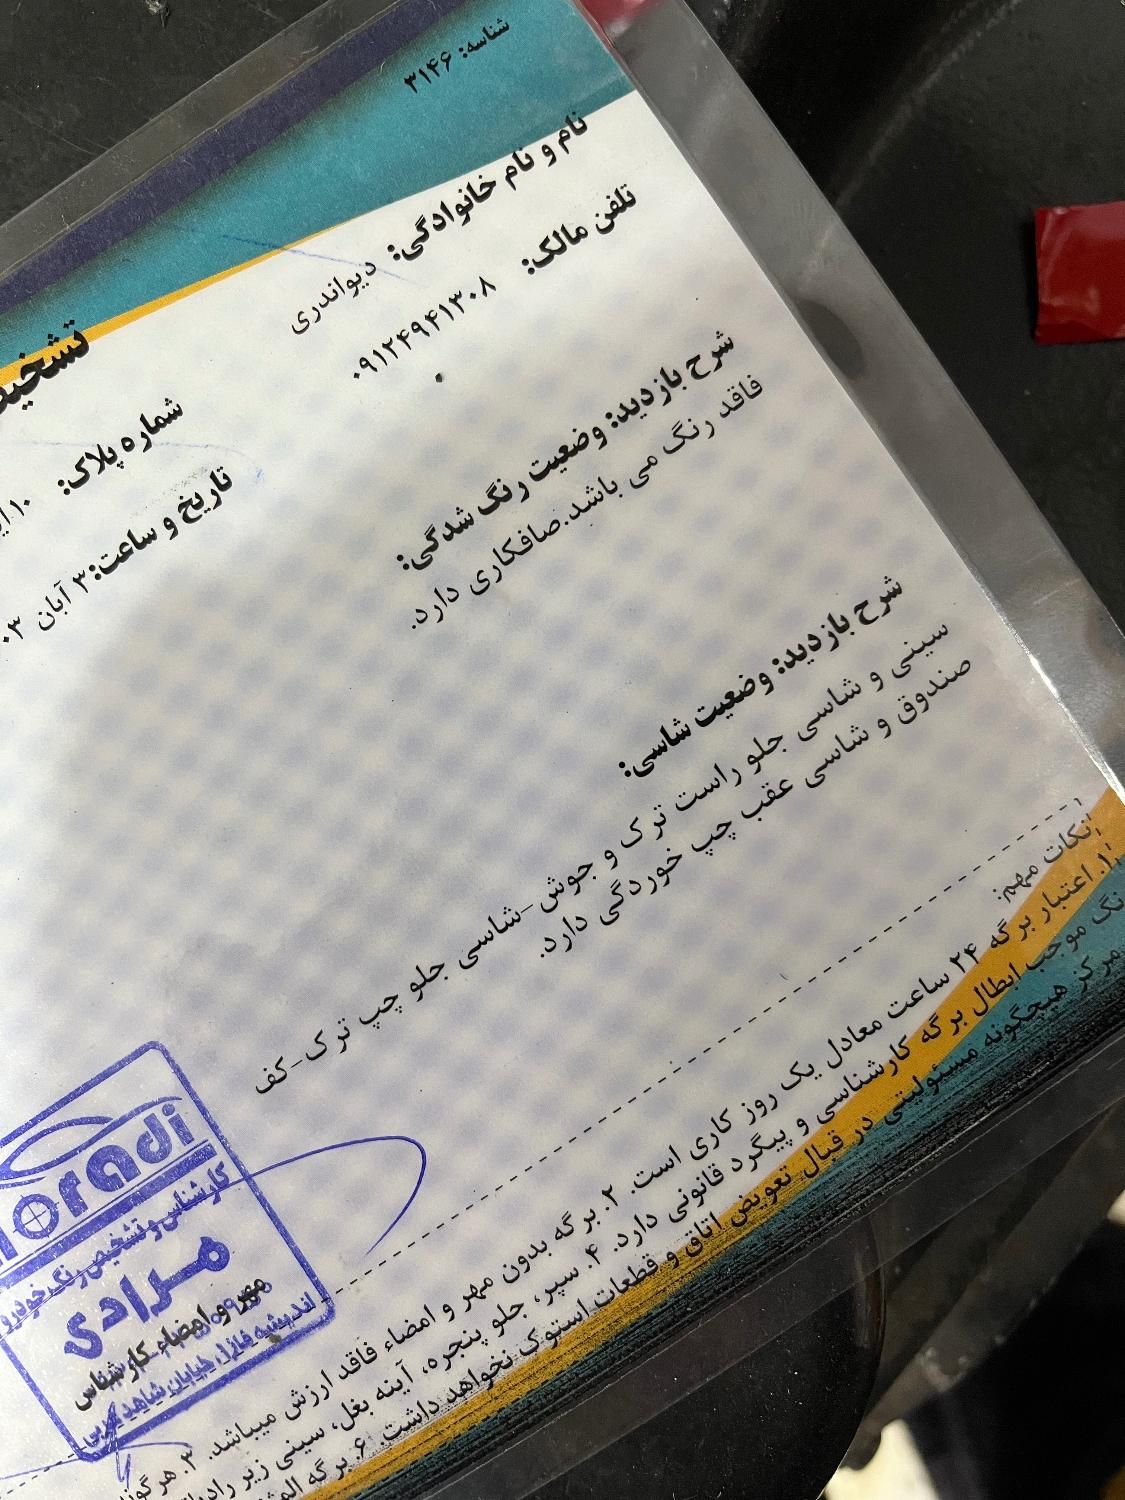 شناسه: ۳۱۴۶
نام و نام خانوادگی: دیواندری
تلفن مالک: ۰۹۱۲۴۹۴۱۳۰۸
شماره پلاک: ۱۰
تاریخ و ساعت: ۳ آبان
شرح بازدید: وضعیت رنگ شدگی:
فاقد رنگ می باشد.صافکاری دارد.
شرح بازدید: وضعیت شاسی:
سینی و شاسی جلو راست ترک و جوش-شاسی جلو چپ ترک-کف
صندوق و شاسی عقب چپ خوردگی دارد.
نکات مهم:
۱. اعتبار برگه ۲۴ ساعت معادل یک روز کاری است. ۲. برگه بدون مهر و امضاء فاقد ارزش میباشد. ۳. هرگونه
موجب ابطال برگه کارشناسی و پیگرد قانونی دارد. ۴. سپر، جلو پنجره، آینه بغل، سینی زیر
مرکز هیچگونه مسئولیتی در قبال تعویض اتاق و قطعات استوک نخواهد داشت. ۶. برگه
oradi
کارشناس و تشخیص رنگ خودرو
مرادی
مهر و امضاء کارشناس
اندیشه فاز۱، خیابان شاهد غربی